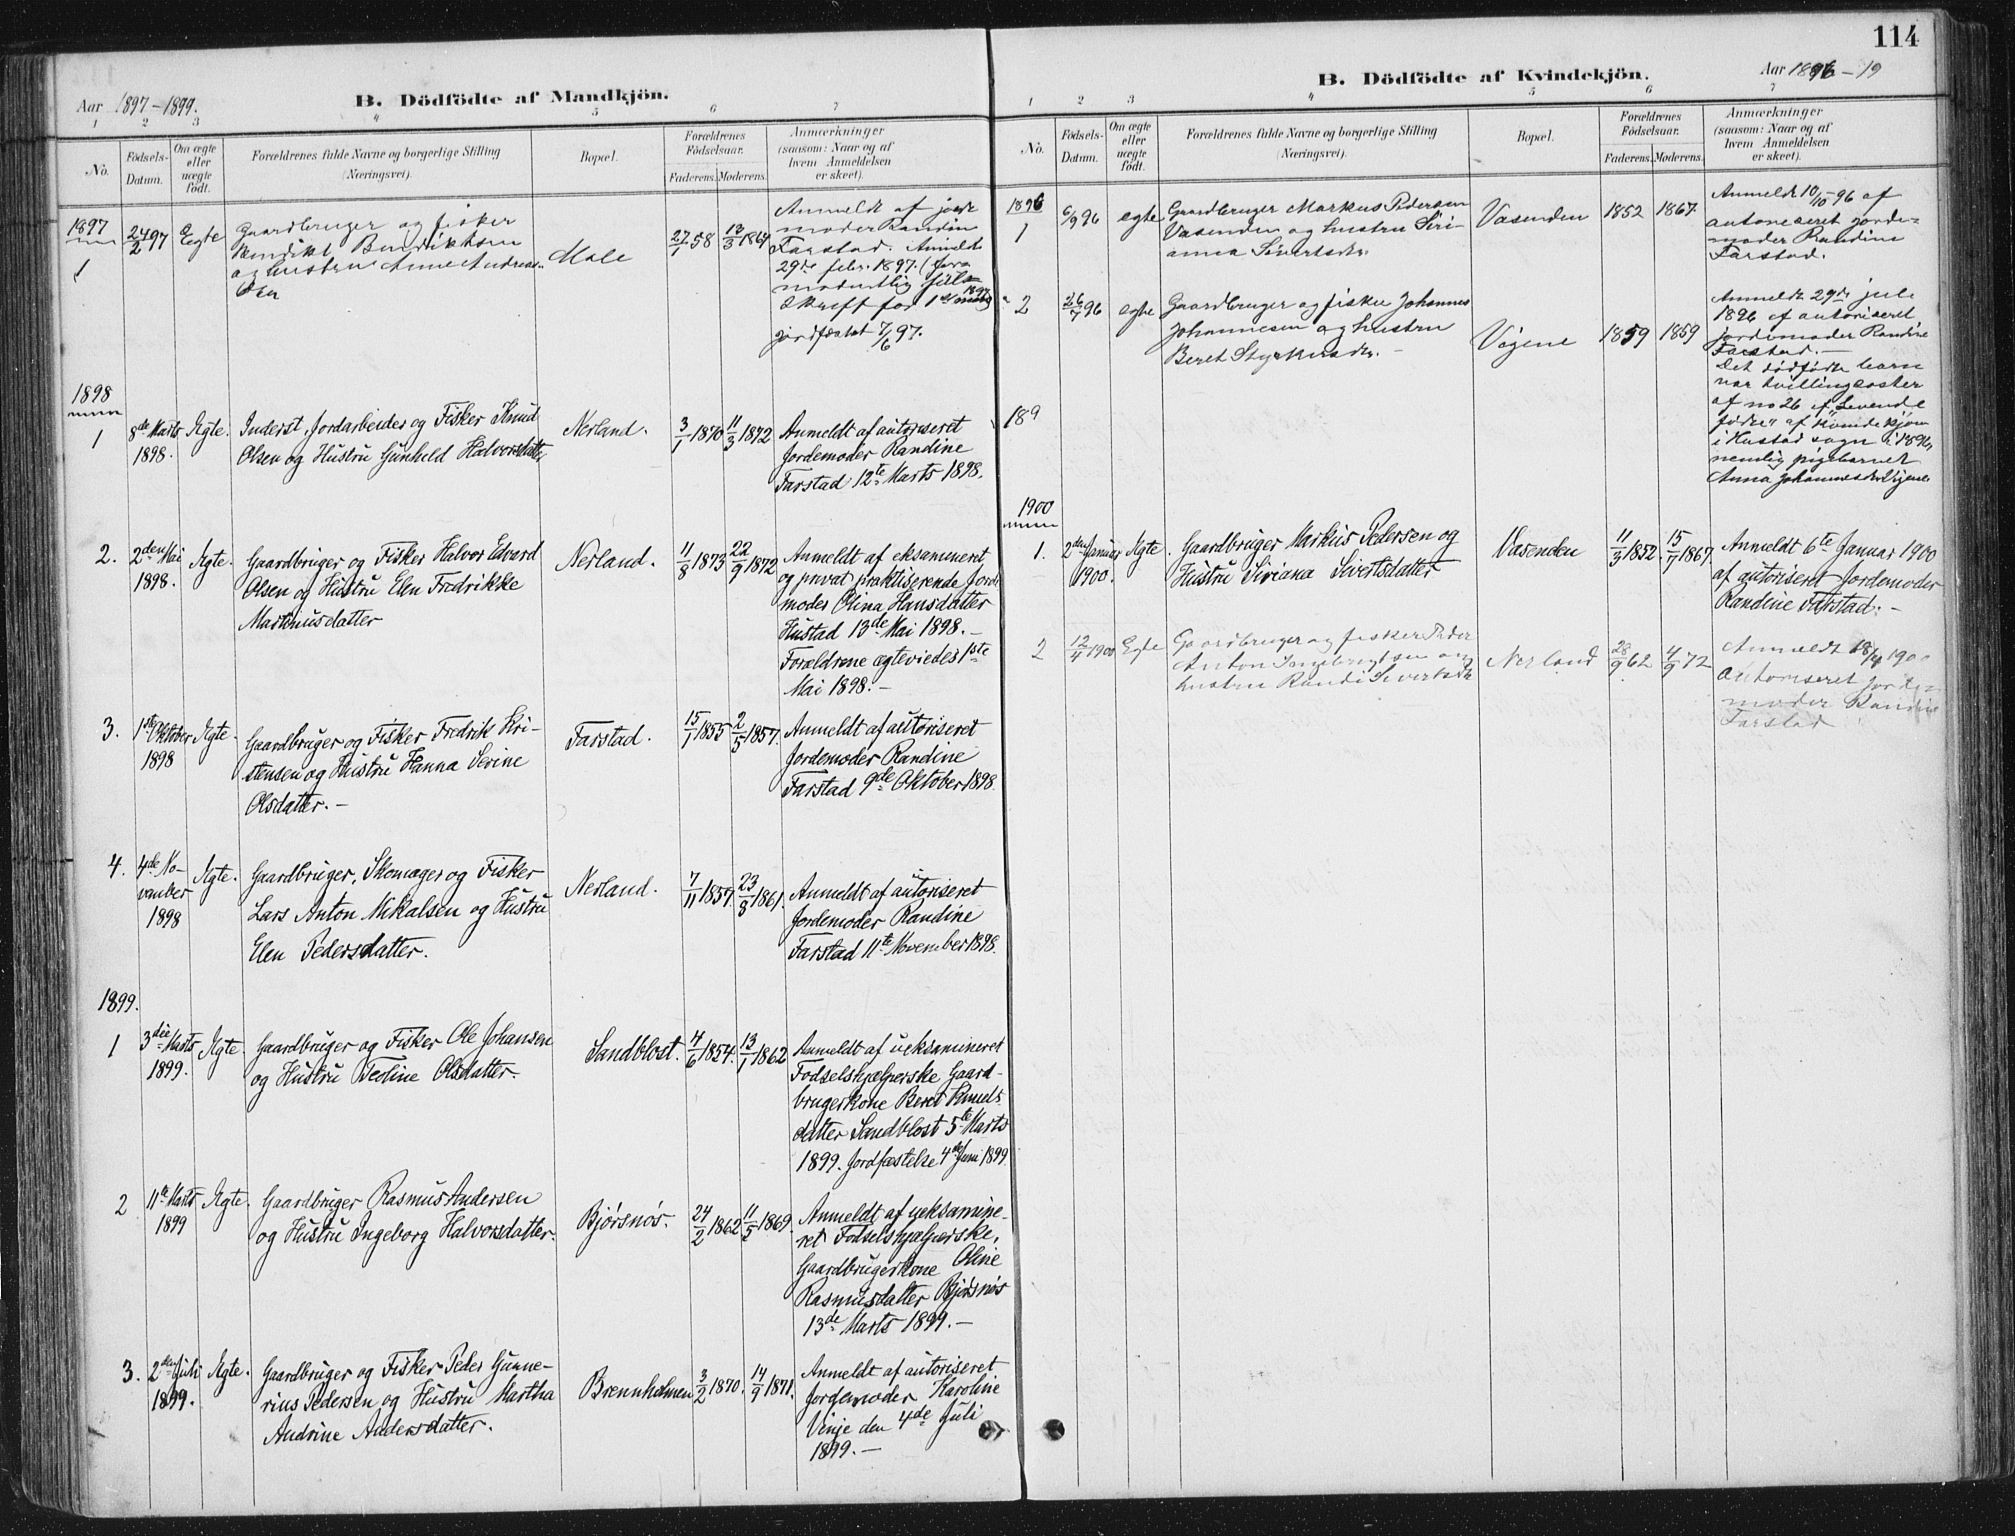 114
Aar 1897-1899.
B. Dödfödte af Mandkjön.
1 2 3 4 5 6 7
No.
Födsels-Datum.
Om ægte eller uægte født.
Forældrenes fulde Navne og borgerlige Stilling
(Næringsvei).
Bopæl.
Forældrenes Födselsaar.
Faderens. Moderens.
Anmærkninger
(saasom: Naar og af
hvem Anmeldelsen
er skeet).
1897
1
24/2 97
Egte
Gaardbruger og fisker
Bendikt Bendiktsen
og hustru Anne Andreas-
Male
27/7 58
13/3 1864
Anmeldt af jorde
moder Randine
Farstad. Anmeldt
29de febr. 1897. (for-
modentlig feil-
skrift for 1ste marts 1897)
jordfæstet 7/6 97.
1898
1
8de Marts
1898.
Ægte.
Inderst, Jordarbeider og Fisker Knud
Olsen og Hustru Gunhild Halvorsdatter
Nerland.
3/1 1870
11/3 1872
Anmeldt af autoriseret
Jordemoder Randine
Farstad 12te Marts 1898.
2.
2den Mai
1898.
Ægte.
Gaardbruger og Fisker Halvor Edvard
Olsen og Hustru Elen Fredrikke
Martinusdatter
Nerland.
11/8 1873
22/9 1872
Anmeldt af eksamineret
og privat praktiserende Jorde
moder Olina Hansdatter
Hustad 13de Mai 1898.-
Forældrene ægteviedes 1ste
Mai 1898.-
3.
1ste Oktober
1898
Ægte.
Gaardbruger og Fisker Fredrik Kri-
stensen og Hustru Hanna Serine
Olsdatter.-
Farstad.
15/1 1855
2/5 1857.
Anmeldt af autoriseret
Jordemoder Randine
Farstad 9de Oktober 1898.
4.
4de No-
vember
1898
Ægte.
Gaardbruger, Skomager og Fisker
Lars Anton Mikalsen og Hustru
Elen Pedersdatter.
Nerland.
7/11 1857.
23/8 1861.
Anmeldt af autoriseret
Jordemoder Randine
Farstad 11te November 1898.
1899.
1
3die Marts
1899.
Ægte.
Gaardbruger og Fisker Ole Johansen
og Hustru Teoline Olsdatter.
Sandblost.
4/6 1854.
13/1 1862
Anmeldt af ueksamineret
Fødselshjælperske Gaard-
brugerkone Beret Knuds-
datter Sandblost 5te Marts
1899. Jordfæstelse 4de Juni 1899.
2
11te Marts
1899
Ægte.
Gaardbruger Rasmus Andersen
og Hustru Ingeborg Halvorsdatter.
Bjørsnøs.
24/2 1862
11/5 1869.
Anmeldt af ueksamine-
ret Fødselshjælperske,
Gaardbrugerkone Oline
Rasmusdatter Bjørsnøs
13de Marts 1899.-
3.
2den Juli
1899.
Ægte.
Gaardbruger og Fisker Peder Gunne-
rius Pedersen og Hustru Martha
Andrine Andersdatter.
Brennholmen
3/2 1870.
14/9 1871.
Anmeldt af autoriseret
Jordemoder Karoline
Vinje den 4de Juli
1899.-
B. Dödfödte af Kvindekjön.
Aar 1896-19
1 2 3 4 5 6 7
No.
Födsels-Datum.
Om ægte eller uægte født.
Forældrenes fulde Navne og borgerlige Stilling
(Næringsvei).
Bopæl.
Forældrenes Födselsaar.
Faderens. Moderens.
Anmærkninger
(saasom: Naar og af
hvem Anmeldelsen
er skeet).
1896
1
6/9 96
egte
Gaardbruger Markus Pedersen
Vasenden og hustru Siri-
anna Sivertsdtr.
Vasenden
1852
1867
Anmeldt 10/10-96 af
autoriseret jorde-
moder Randine
Farstad.
2
26/7 96
egte
Gaardbruger og fisker Johannes
Johannesen og hustru
Beret Styrkersdtr.-
Vegene
1859
1859
Anmeldt 29de juli
1896 af autoriseret
jordemoder Randine
Farstad.-
Det dødfødte barn
var tvillingsøster
af no 26 af "Levende
fødte" af kvindekjøn
i Hustad sogn i 1896,
nemlig pigebarnet
Anna Johannesdtr
189
1900
1.
2den Januar
1900.
Ægte.
Gaardbruger Markus Pedersen og
Hustru Siriana Sivertsdatter
Vasenden
11/3 1852.
15/7 1867.
Anmeldt 6te Januar 1900
af autoriseret Jordemoder
Randine Farstad.-
2
12/4 1900
Egte
Gaardbruger og fisker Peder
Anton Ingebrigtsen og
hustru Randi Sivertsdtr
Nerland
28/9 62
4/9 72
Anmeldt 18/4 1900
autoriseret jorde-
moder Randine
Farstad